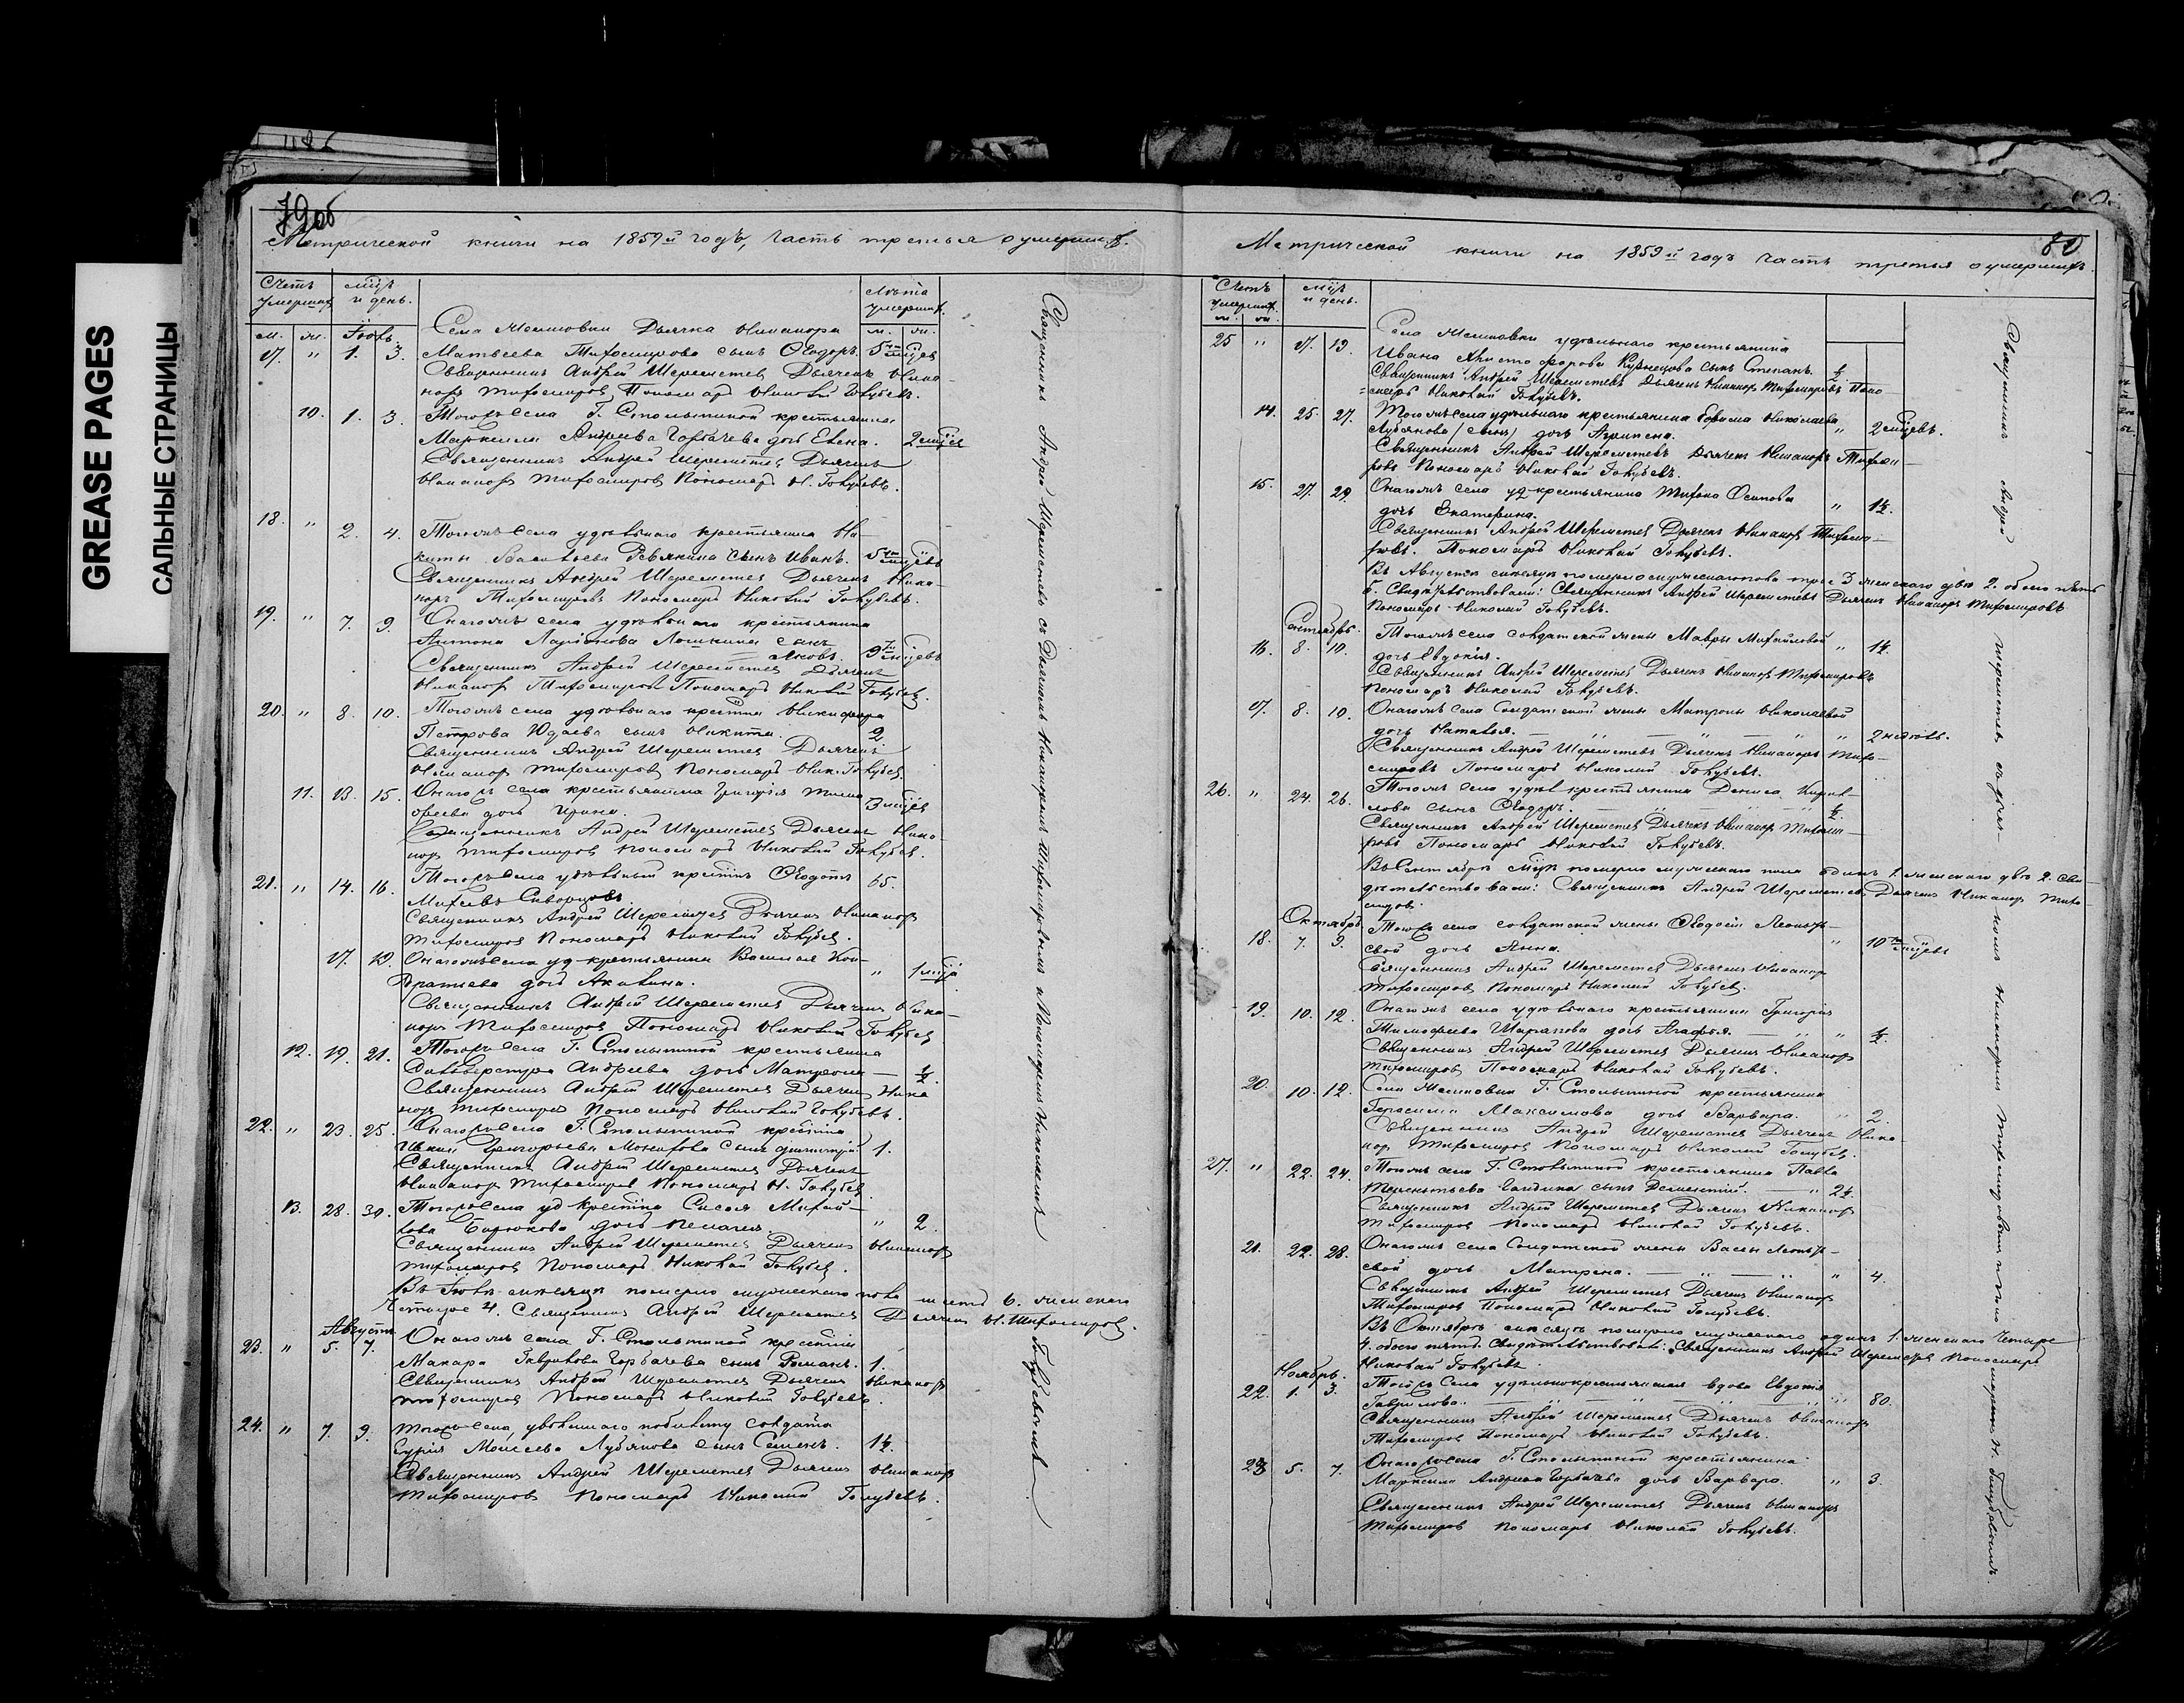 GREASE PAGES
САЛЬНЫЕ СТРАНИЦЫ
79об
Метрической книги на 1859й годъ, часть третья о умершихъ.
Счетъ умершихъ
мцъ и день.
Лѣта умершихъ
м. ж. Іюль м. ж.
17. " 1. 3. Села Дьячка Никанора
Матвеева Тихомирова сынъ Ѳеодоръ. 5ти мцевъ
Священникъ Андрей Шереметев Дьячекъ Ника-
норъ Тихомиров Пономарь Николай Голубевъ.
10. 1. 3. Тогожъ села Г. Столыпиной крестьянина
Маркелла Андреева Горбачева дочь Елена. 2 мцев
Священникъ Андрей Шереметев Дьячекъ
Никанор Тихомиров Пономарь Н. Голубевъ.
18. " 2. 4. Тогожъ села удѣльнаго крестьянина Ни-
киты сынъ Иванъ. 5ти мцевъ
Священникъ Андрей Шереметев Дьячекъ Ника-
норъ Тихомировъ Пономарь Николай Голубевъ.
19. " 7. 9. Онагожъ села удѣльнаго крестьянина
Антона Ларіонова сынъ
Яковъ. 9ти мцевъ
Священникъ Андрей Шереметев Дьячекъ
Никанор Тихомиров Пономарь Николай Голубев.
20. " 8. 10. Тогожъ села удѣльнаго крестьянина Никифора
Петрова Юдаева сынъ Никита. 2
Священникъ Андрей Шереметев Дьячекъ
Никанор Тихомиров Пономарь Ник. Голубев.
11. 13. 15. Онагожъ села крестьянина Григорія Тимо-
феева дочь Ирина. 3 мцев
Священникъ Андрей Шереметев Дьячекъ Ника-
нор Тихомиров Пономарь Николай Голубев.
21. " 14. 16. Тогожъ села удѣльный крестьянинъ Ѳедотъ 65.
Михеевъ Скворцовъ.
Священникъ Андрей Шереметев Дьячекъ Никанор
Тихомиров Пономарь Николай Голубев.
17. 19. Онагожъ села уд. крестьянина Василья Кон-
дратьева дочь Акилина. " 1 мца
Священникъ Андрей Шереметев Дьячекъ Ника-
нор Тихомиров Пономарь Николай Голубев
12. 19. 21. Тогожъ села Г. Столыпиной крестьянина
Андреева дочь Матрона — ½.
Священникъ Андрей Шереметев Дьячекъ Ника
нор Тихомиров Пономарь Николай Голубевъ.
22. " 23. 25. Онагожъ села Г. Столыпиной крестьянина
Ивана Григорьева сынъ Димитрій. 1.
Священникъ Андрей Шереметев Дьячекъ
Никанор Тихомиров Пономарь Н. Голубев.
13. 28. 30. Тогожъ села уд. крестьянина Сысоя Михай-
лова Бирюкова дочь Пелагея. " 2.
Священникъ Андрей Шереметев Дьячекъ Никанор
Тихомиров Пономарь Николай Голубев.
Въ Іюлѣ мѣсяцѣ померло мужескаго пола шесть 6. женскаго
четыре 4. Священникъ Андрей Шереметев Дьячекъ Н. Тихомиров.
Августъ
23. " 5. 7. Онагожъ села Г. Столыпиной крестьянина
Макара Гаврилова Горбачева сынъ Романъ. 1.
Священникъ Андрей Шереметев Дьячекъ Никанор
Тихомиров Пономарь Николай Голубевъ.
24. " 7. 9. Тогожъ села, уволеннаго по билету солдата
Моисеева Лубянова сынъ Семенъ. 1½.
Священникъ Андрей Шереметев Дьячекъ Никанор
Тихомиров Пономарь Николай Голубевъ.
Священникъ Андрей Шереметевъ съ Дьячкомъ Никаноромъ Тихомировымъ и Пономаремъ Николаемъ Голубевымъ
80
Метрической книги на 1859й годъ часть третья о умершихъ.
Счетъ умершихъ
мцъ и день.
м. ж.
25 " 17. 19. Села удѣльнаго крестьянина
Ивана Христофорова Кузнецова сынъ Степанъ. ½
Священникъ Андрей Шереметевъ Дьячекъ Никанор Тихомировъ Поно-
марь Николай Голубевъ.
14. 25. 27. Тогожъ села удѣльнаго крестьянина Ефима Николаева
Лубянова дочь Агрипена. " 2 мцевъ.
Священникъ Андрей Шереметевъ Дьячекъ Никаноръ Тихоми-
ровъ Пономарь Николай Голубевъ.
15. 27. 29. Онагожъ села уд. крестьянина Тихона Осипова
дочь Екатерина. " 1½.
Священникъ Андрей Шереметев Дьячекъ Никанор Тихоми-
ровъ. Пономарь Николай Голубевъ.
Въ Августѣ мѣсяцѣ померло мужескаго пола три 3 женскаго двѣ 2. обоего пять
5. Свидѣтельствовали: Священникъ Андрей Шереметевъ Дьячекъ Никаноръ Тихомировъ
Пономарь Николай Голубевъ.
Сентябрь.
16. 8. 10. Тогожъ села солдатской жены Мавры Михайловой " 1½.
дочь Евдокія.
Священникъ Андрей Шереметев Дьячекъ Никанор Тихомировъ
Пономарь Николай Голубевъ.
17. 8. 10. Онагожъ села Солдатской жены Матроны Николаевой
дочь Наталья. " 2 недѣль.
Священникъ Андрей Шереметевъ Дьячекъ Никаноръ Тихо-
мировъ Пономарь Николай Голубевъ.
26. " 24. 26. Тогожъ села удѣл. крестьянина Дениса Кирил-
лова сынъ Ѳеодоръ. ½.
Священникъ Андрей Шереметев Дьячекъ Никанор Тихоми-
ровъ Пономарь Николай Голубевъ.
Въ Сентябрѣ мцѣ померло мужескаго пола одинъ 1. женскаго двѣ 2. Сви-
дѣтельствовали: Священникъ Андрей Шереметев Дьячекъ Никанор Тихо-
миров.
Октябрь.
18. 7. 9. Тогожъ села солдатской жены Ѳедосьи Леонть-
евой дочь Анна. " 10ти мцевъ
Священникъ Андрей Шереметев Дьячекъ Никанор
Тихомиров Пономарь Николай Голубев.
19. 10. 12. Онагожъ села удѣльнаго крестьянина Григорія
Тимофеева дочь Агафья. " ½.
Священникъ Андрей Шереметев Дьячекъ Никанор
Тихомиров Пономарь Николай Голубевъ.
20. 10. 12. Села Г. Столыпиной крестьянина
Герасима Максимова дочь Варвара. " 2.
Священникъ Андрей Шереметев Дьячекъ Ника-
нор Тихомиров Пономарь Николай Голубев.
27. " 22. 24. Тогожъ села Г. Столыпиной крестьянина Павла
Терентьева сынъ Дементій. 2½.
Священникъ Андрей Шереметев Дьячекъ Никанор
Тихомиров Пономарь Николай Голубевъ.
21. 22. 28. Онагожъ села Солдатской жены Васы Леонть-
евой дочь Матрена. " 4.
Священникъ Андрей Шереметев Дьячекъ Никанор
Тихомиров Пономарь Николай Голубевъ.
Въ Октябрѣ мѣсяцѣ померло мужескаго одинъ 1. женскаго четыре
4. обоего пять. Свидѣтельствовали: Священникъ Андрей Шереметев Пономарь
Николай Голубевъ.
Ноябрь.
22. 1. 3. Тогожъ Села удѣльнокрестьянская вдова Евдокія
Гаврилова. 80.
Священникъ Андрей Шереметев Дьячекъ Никанор
Тихомиров Пономарь Николай Голубевъ.
23 5. 7. Онагожъ села Г. Столыпиной крестьянина
Маркела Андреева Горбачева дочь Варвара. " 3.
Священникъ Андрей Шереметев Дьячекъ Никаноръ
Тихомиров Пономарь Николай Голубевъ.
Священникъ Андрей Шереметевъ съ Дьячкомъ Никаноромъ Тихомировымъ и Пономаремъ Н. Голубевымъ.